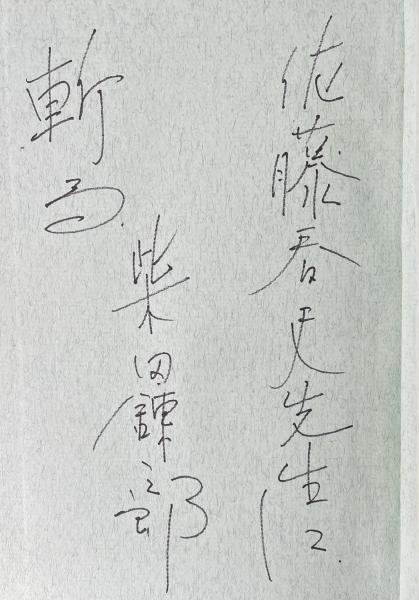 佐藤春夫先生に
柴田錬三郎
斬